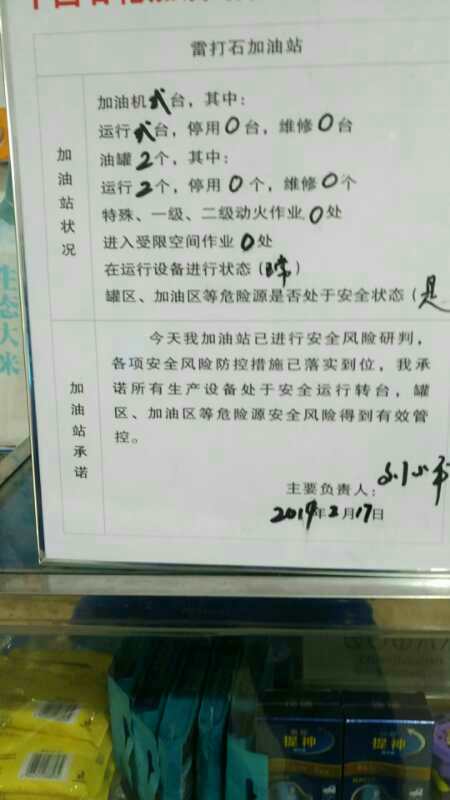 雷打石加油站
加油站状况
加油机弍台，其中：
运行弍台，停用0台，维修0台
油罐2个，其中：
运行2个，停用0个，维修0个
特殊、一级、二级动火作业0处
进入受限空间作业0处
在运行设备进行状态（正常）
罐区、加油区等危险源是否处于安全状态（是
加油站承诺
今天我加油站已进行安全风险研判，
各项安全风险防控措施已落实到位，我承
诺所有生产设备处于安全运行转台，罐
区、加油区等危险源安全风险得到有效管
控。
主要负责人：
2019年2月17日
生态大米
提神
提神